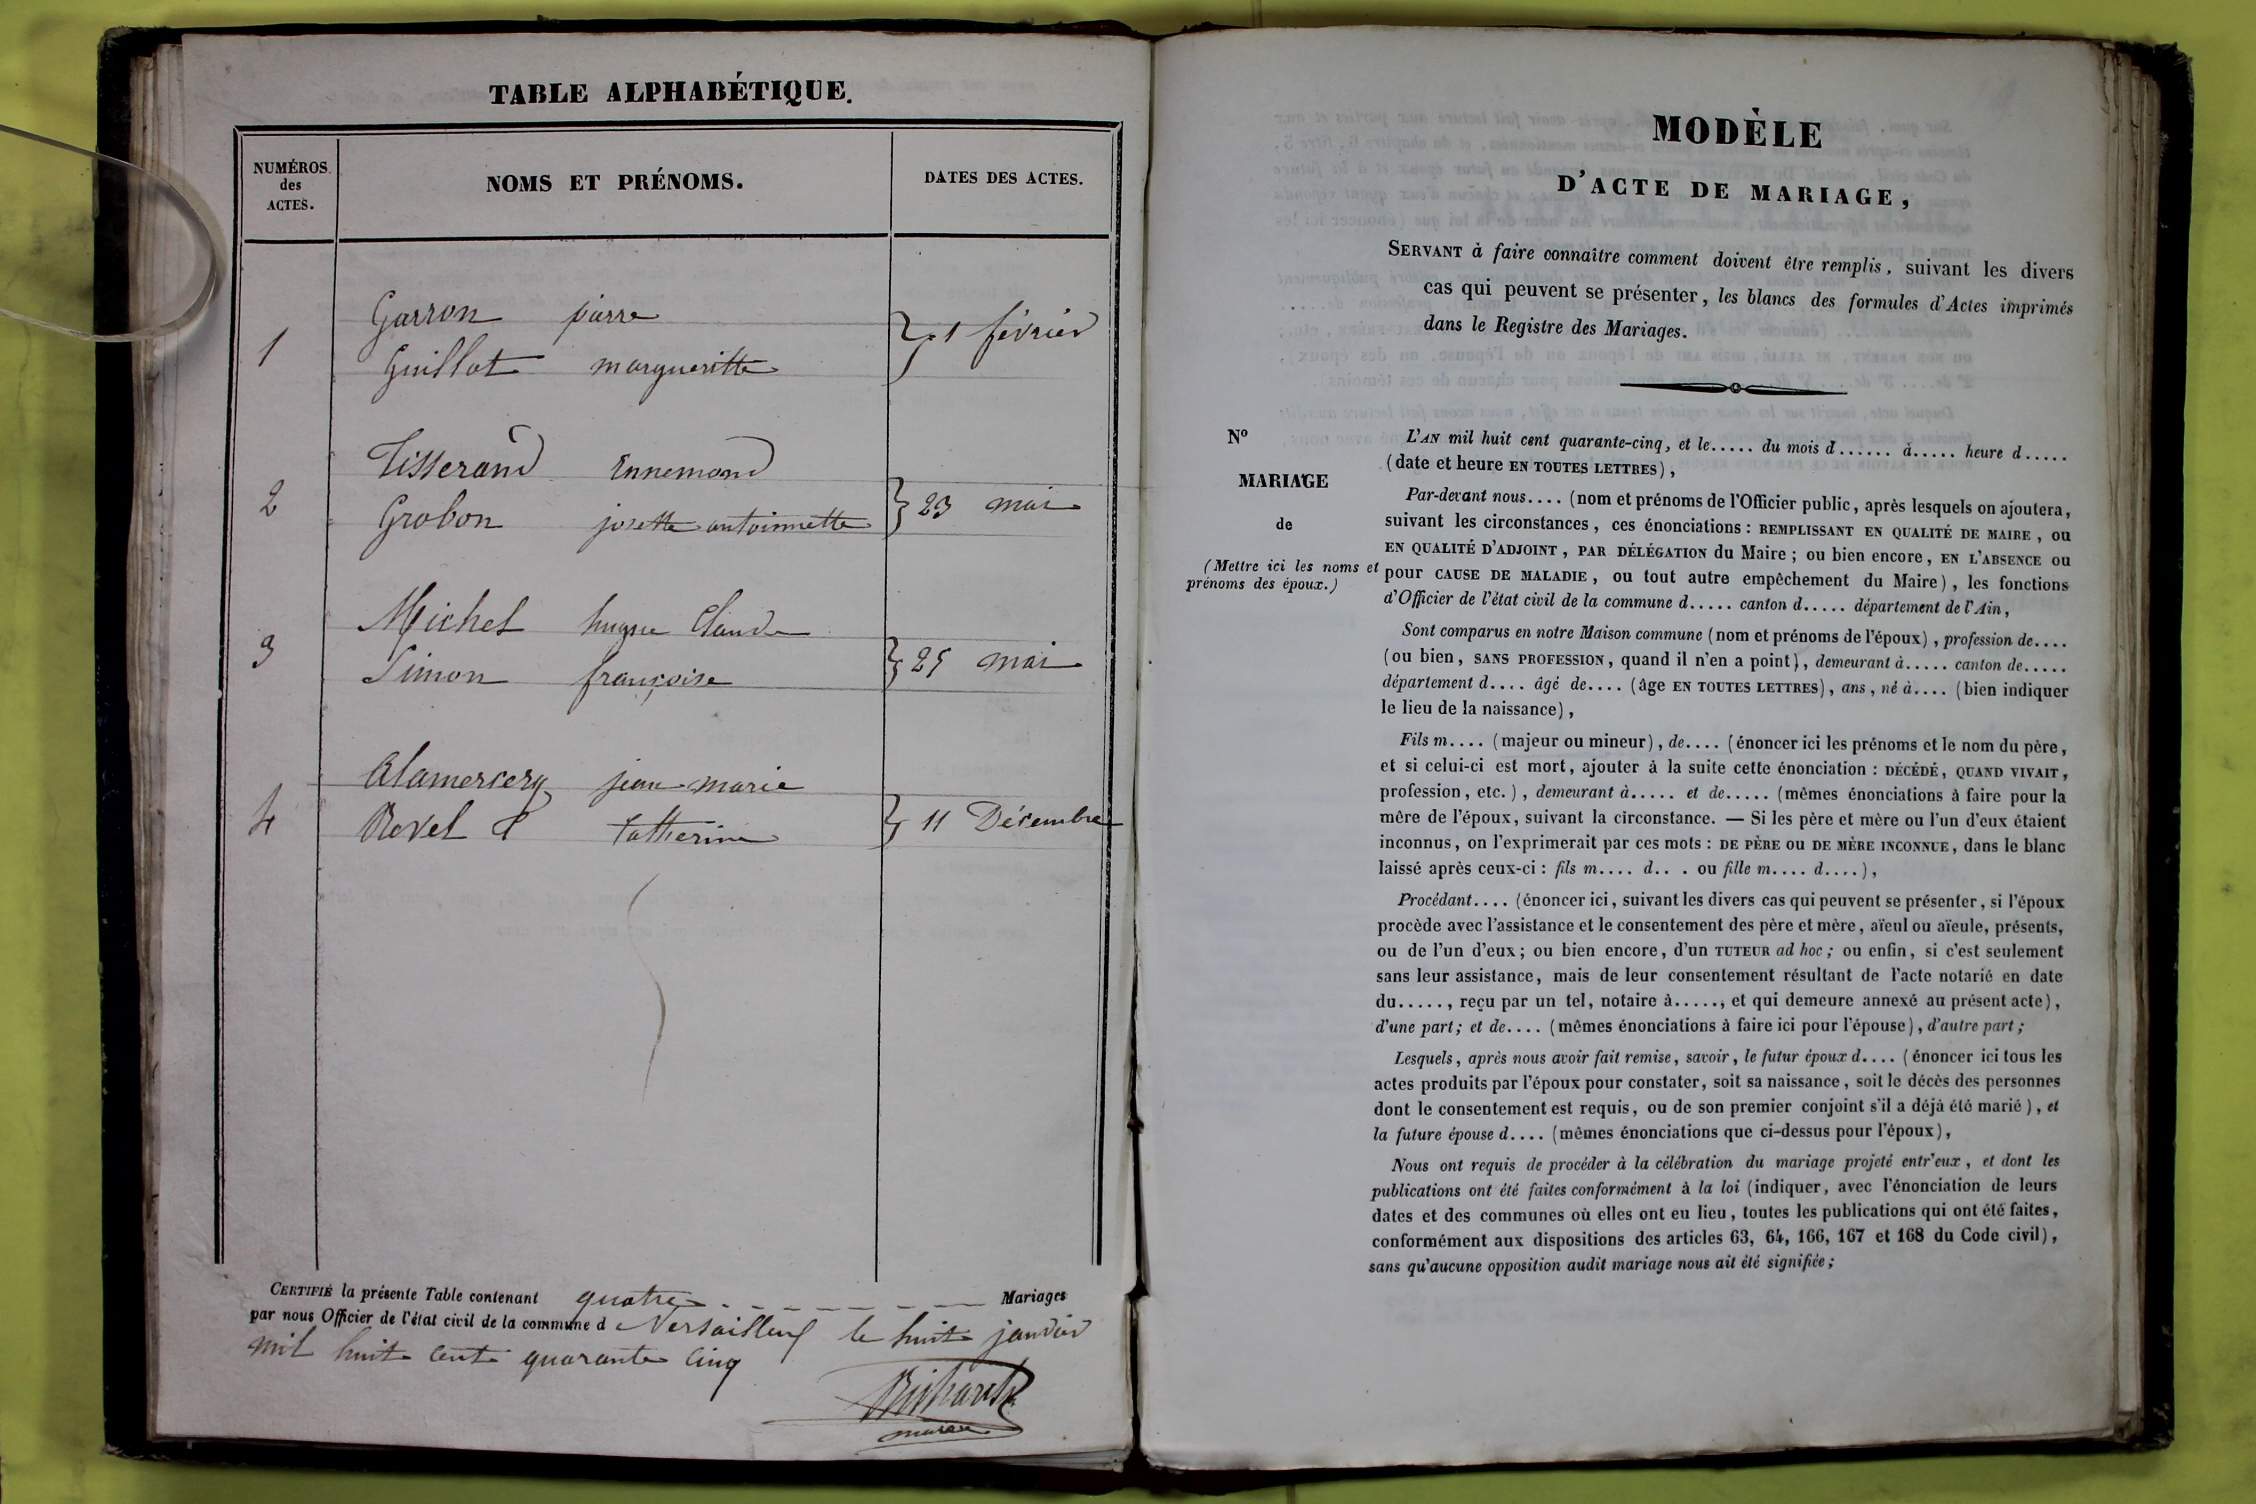 TABLE ALPHABÉTIQUE.
NUMÉROS des ACTES.
NOMS ET PRÉNOMS.
DATES DES ACTES.
Garron pierre
1 } 1 février
Guillot margueritte
Tisserand Ennemond
2 } 23 mai
Grobon josette antoinnette
Michel hugue Claude
3 } 25 mai
Simon françoise
Alamercery jean marie
4 } 11 Décembre
Revel Catherine
CERTIFIÉ la présente Table contenant quatre Mariages
par nous Officier de l'état civil de la commune d Versailleux le huit janvier
mil huit cent quarante cinq
Richard
maire
MODÈLE
D'ACTE DE MARIAGE,
SERVANT à faire connaître comment doivent être remplis, suivant les divers
cas qui peuvent se présenter, les blancs des formules d'Actes imprimés
dans le Registre des Mariages.
Nº
MARIAGE
de
(Mettre ici les noms et
prénoms des époux.)
L'AN mil huit cent quarante-cinq, et le..... du mois d...... à..... heure d.....
(date et heure EN TOUTES LETTRES),
Par-devant nous.... (nom et prénoms de l'Officier public, après lesquels on ajoutera,
suivant les circonstances, ces énonciations : REMPLISSANT EN QUALITÉ DE MAIRE, ou
EN QUALITÉ D'ADJOINT, PAR DÉLÉGATION du Maire ; ou bien encore, EN L'ABSENCE ou
pour CAUSE DE MALADIE, ou tout autre empêchement du Maire), les fonctions
d'Officier de l'état civil de la commune d..... canton d..... département de l'Ain,
Sont comparus en notre Maison commune (nom et prénoms de l'époux), profession de....
(ou bien, SANS PROFESSION, quand il n'en a point), demeurant à..... canton de.....
département d.... âgé de.... (âge EN TOUTES LETTRES), ans, né à.... (bien indiquer
le lieu de la naissance),
Fils m.... (majeur ou mineur), de.... (énoncer ici les prénoms et le nom du père,
et si celui-ci est mort, ajouter à la suite cette énonciation : DÉCÉDÉ, QUAND VIVAIT,
profession, etc.), demeurant à..... et de..... (mêmes énonciations à faire pour la
mère de l'époux, suivant la circonstance. — Si les père et mère ou l'un d'eux étaient
inconnus, on l'exprimerait par ces mots : DE PÈRE ou DE MÈRE INCONNUE, dans le blanc
laissé après ceux-ci : fils m.... d.. . ou fille m.... d....),
Procédant.... (énoncer ici, suivant les divers cas qui peuvent se présenter, si l'époux
procède avec l'assistance et le consentement des père et mère, aïeul ou aïeule, présents,
ou de l'un d'eux ; ou bien encore, d'un TUTEUR ad hoc ; ou enfin, si c'est seulement
sans leur assistance, mais de leur consentement résultant de l'acte notarié en date
du....., reçu par un tel, notaire à....., et qui demeure annexé au présent acte),
d'une part ; et de.... (mêmes énonciations à faire ici pour l'épouse), d'autre part ;
Lesquels, après nous avoir fait remise, savoir, le futur époux d.... (énoncer ici tous les
actes produits par l'époux pour constater, soit sa naissance, soit le décès des personnes
dont le consentement est requis, ou de son premier conjoint s'il a déjà été marié), et
la future épouse d.... (mêmes énonciations que ci-dessus pour l'époux),
Nous ont requis de procéder à la célébration du mariage projeté entr'eux, et dont les
publications ont été faites conformément à la loi (indiquer, avec l'énonciation de leurs
dates et des communes où elles ont eu lieu, toutes les publications qui ont été faites,
conformément aux dispositions des articles 63, 64, 166, 167 et 168 du Code civil),
sans qu'aucune opposition audit mariage nous ait été signifiée ;